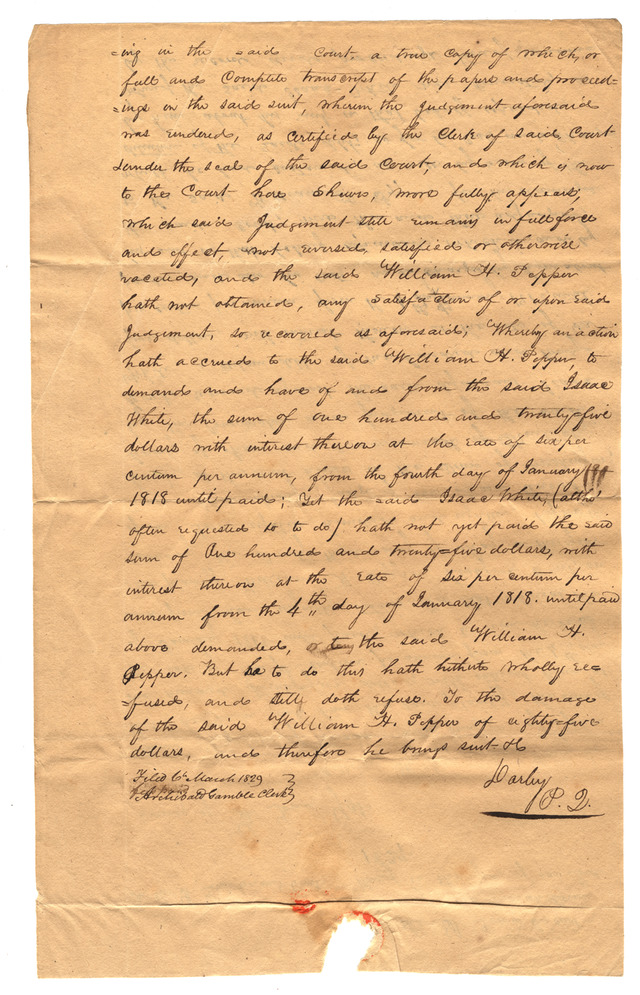 =ing in the said Court, a true copy of which, or
full and Complete transcript of the papers and proseed=
=ings on the said suit, wherein the judgement aforesaid
was rendered, as certified by the Clerk of said Court
under the seal of the said Court, and which is now
to the Court here Shewn, more fully appears;
which said Judgement still remains in full force
and effect, not reversed, satisfied or otherwise
vacated, and the said William H. Pepper
hath not obtained, any satisfaction of or upon said
Judgement, so recovered as aforesaid; Whereby an action
hath accrued to the said William H. Pepper, to
demand and have of and from the said Isaac
White, the sum of one hundred and twenty=five
dollars with interest thereon at the rate of six per
centum per annum, from the fourth day of January
1818 until paid; Yet the said Isaac White, (altho'
often requested so to do) hath not yet paid the said
sum of One hundred and twenty=five dollars, with
interest thereon at the rate of six per centum per
annum from the 4th day of January 1818. until paid
above demanded, the said William H.
Pepper. But to do this hath hitherto wholly re=
=fused, and still doth refuse. To the damage
of the said William H. Pepper of eighty=five
dollars, and therefore he brings suit &c
Filed 6th March 1829
Archibald Gamble Clerk
Darby
P. Q.